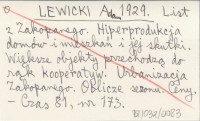 LEWICKI Adam 1929. List
z Zakopanego. Hiperprodukcja
domów i mieszkań i jej skutki.
Większe objekty przechodzą do
rąk kooperatyw. Urbanizacja
Zakopanego. Oblicze sezonu. Ceny.
- Czas 81. nr. 173.